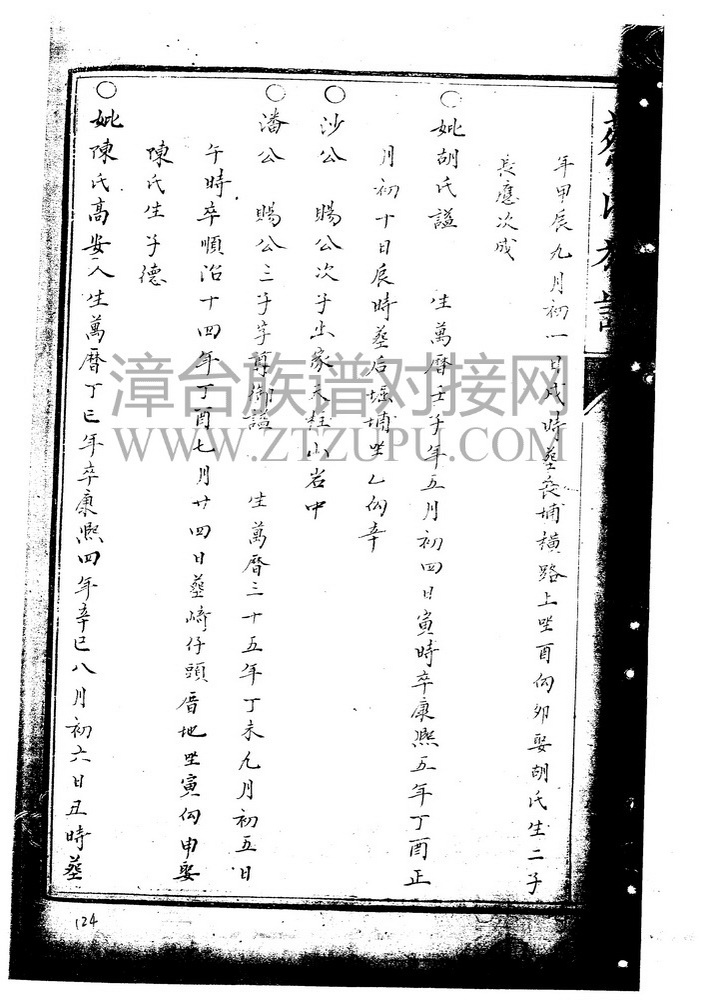 年甲辰九月初一日戌時葬長埔橫路上坐酉向卯娶胡氏生二子
長應次成
○妣胡氏謚 生萬曆壬子年五月初四日寅時卒康熙五年丁酉正
月初十日辰時葬后堀埔坐乙向辛
○沙公 賜公次子出家天柱山岩中
○潘公 賜公三子字 御謚 生萬曆三十五年丁未九月初五日
午時卒順治十四年丁酉七月廿四日葬崎仔頭厝地坐寅向申娶
陳氏生子德
○妣陳氏高安人生萬曆丁巳年卒康熙四年辛巳八月初六日丑時葬
漳台族谱对接网
WWW.ZTZUPU.COM
124